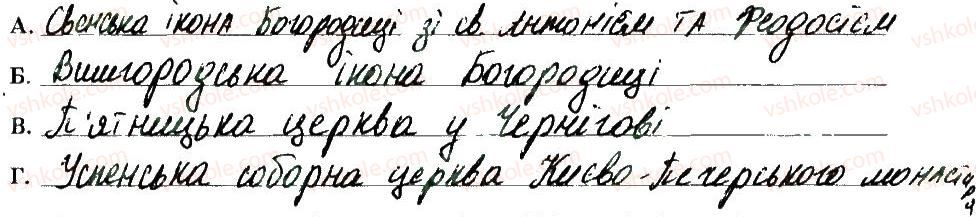 А. Свенська ікона Богородиці зі св. Антонієм ТА Феодосієм
Б. Вишгородська ікона Богородиці
В. П'ятницька церква у Чернігові
Г. Успенська соборна церква Києво-Печерського монастиря